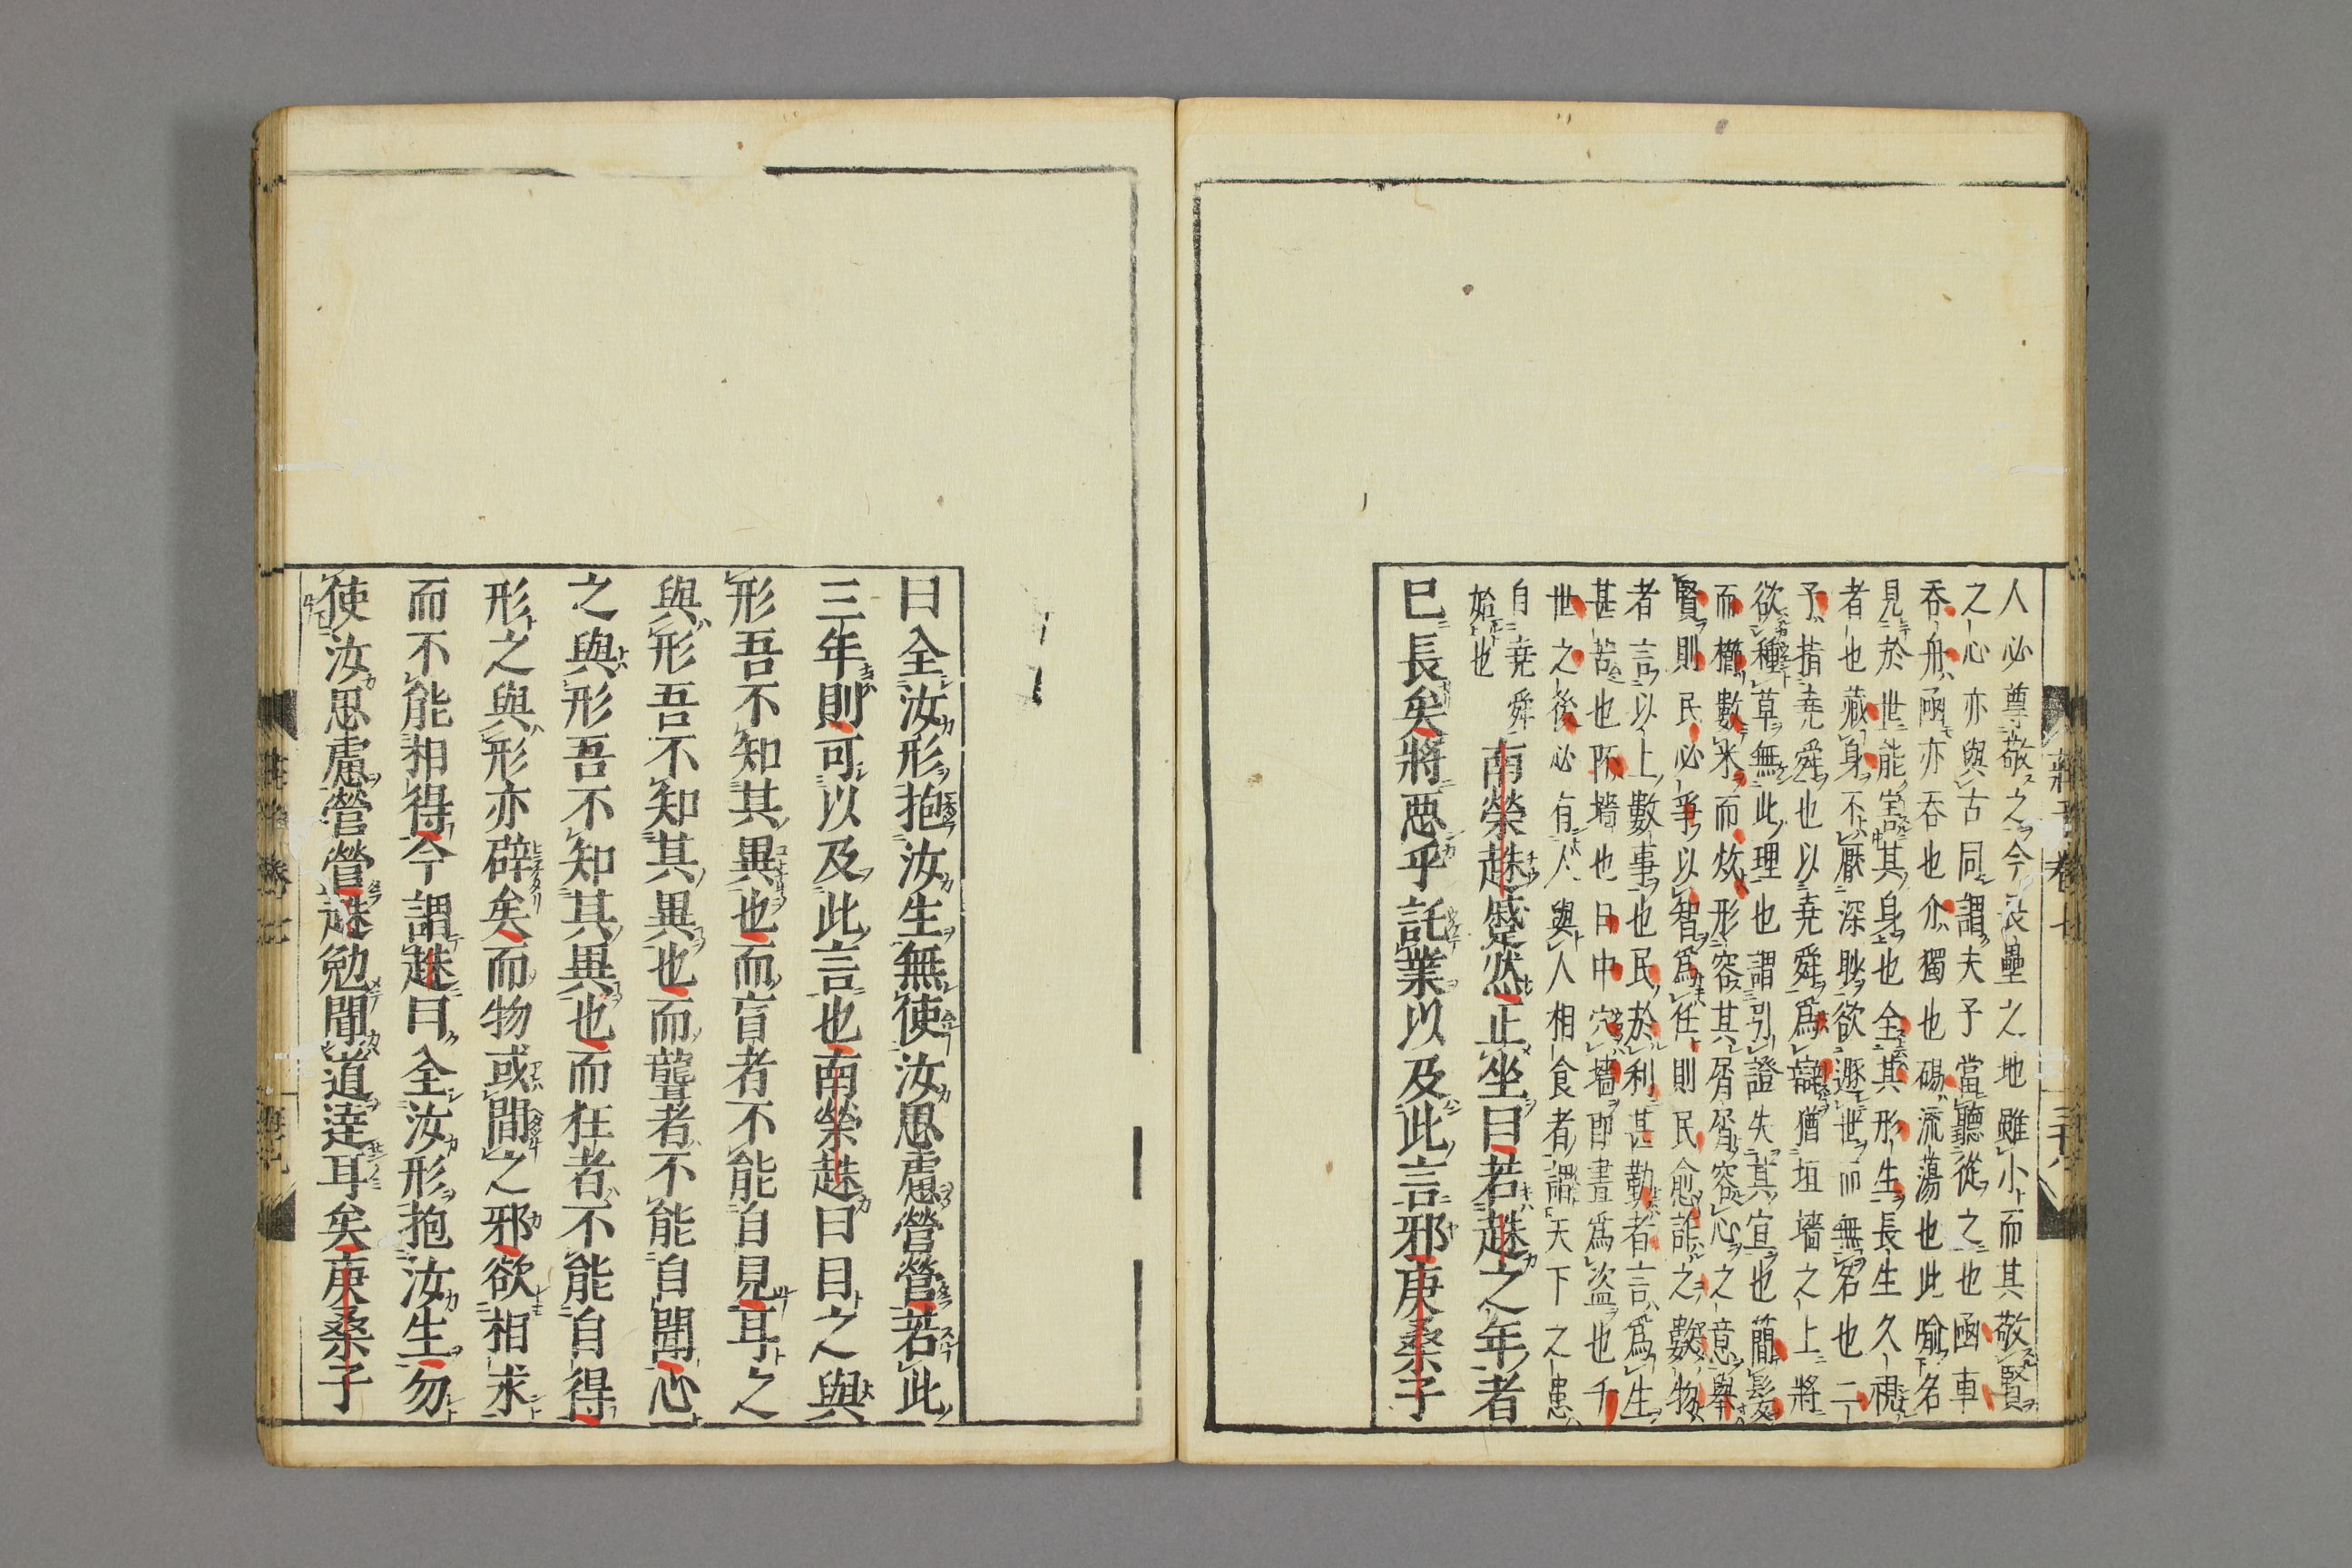 人必尊敬之今畏壘之地雖小而其敬賢
之心亦與古同謂夫子當聽從之也函車
吞舟函亦吞也介獨也碭流蕩也此喻名
見於世能害其身也全其形生長生久視
者也藏身不厭深眇欲遯世而無名也二
予指堯舜也以堯舜爲辯猶垣墻之上將
欲種草無此理也謂引證失其宜也簡髮
而櫛數米而炊形容其屑屑容心之意舉
賢則民必爭以智爲任則民愈詐之數物
者言以上數事也民於利甚勤者言爲生
甚苦也阫墻也日中穴墻即晝爲盜也千
世之後必有人與人相食者謂天下之患
自堯舜
始也
南榮趎蹵然正坐曰若趎之年者
已長矣將惡乎託業以及此言邪庚桑子
曰全汝形抱汝生無使汝思慮營營若此
三年則可以及此言也南榮趎曰目之與
形吾不知其異也而盲者不能自見耳之
與形吾不知其異也而聾者不能自聞心
之與形吾不知其異也而狂者不能自得
形之與形亦辟矣而物或間之邪欲相求
而不能相得今謂趎曰全汝形抱汝生勿
使汝思慮營營趎勉聞道達耳矣庚桑子